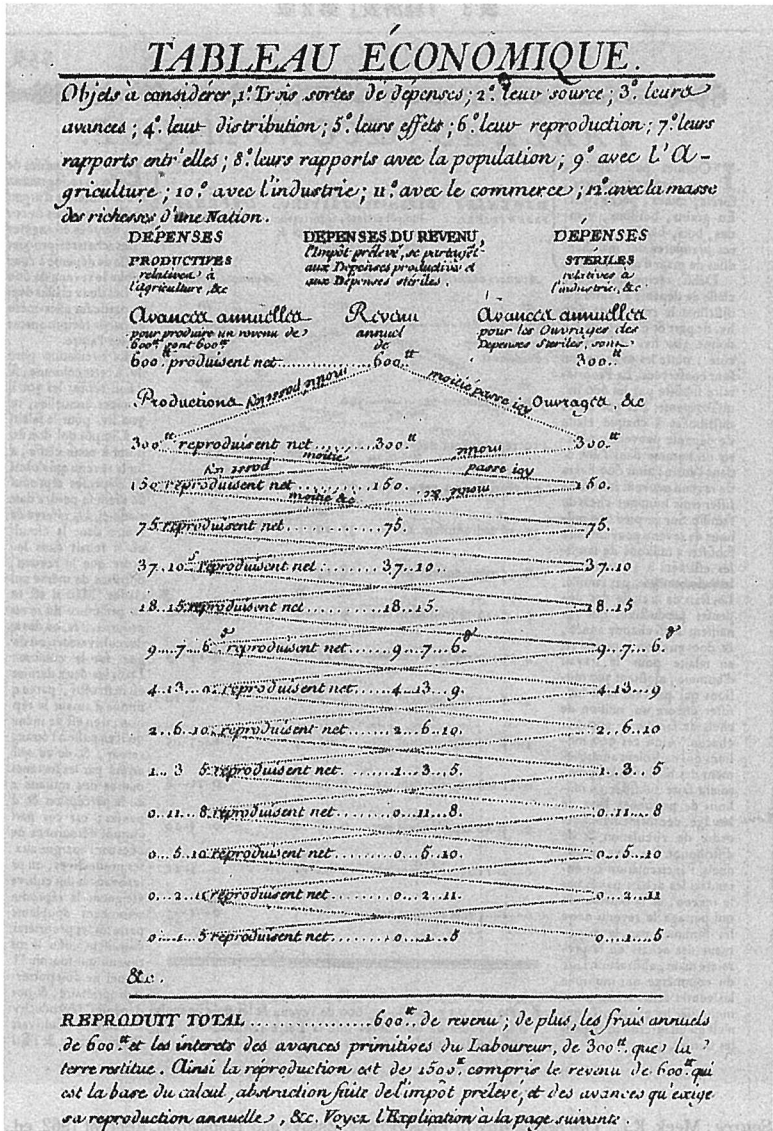 TABLEAU ÉCONOMIQUE.
Objets à considérer, 1.º Trois sortes de dépenses; 2.º leur source; 3.º leurs
avances; 4.º leur distribution; 5.º leurs effets; 6.º leur reproduction; 7.º leurs
rapports entr'elles; 8.º leurs rapports avec la population; 9.º avec l'A-
griculture; 10.º avec l'industrie; 11.º avec le commerce; 12.º avec la masse
des richesses d'une Nation.
DÉPENSES DÉPENSES DU REVENU, DÉPENSES
PRODUCTIVES l'Impôt prélevé, se partagent STÉRILES
relatives à aux Dépenses productives et relatives à
l'agriculture, &c aux Dépenses stériles. l'industrie, &c
Avances annuelles Revenu Avances annuelles
pour produire un revenu de annuel pour les Ouvrages des
600.tt sont 600.tt de Dépenses Stériles, sont
600.tt produisent net............600.tt 300.tt
Productions moitié passe icy Ouvrages, &c
300.tt reproduisent net.......300.tt 300.tt
moitié passe icy
150. reproduisent net.........150. 150.
moitié &c
75. reproduisent net...........75. 75.
37..10.s reproduisent net.......37..10. 37..10
18..15. reproduisent net.......18..15. 18..15
9...7...6.d reproduisent net.....9...7...6.d 9...7...6.d
4..13...9. reproduisent net.....4..13...9. 4..13...9
2...6..10. reproduisent net.....2...6..10. 2...6..10
1...3 5. reproduisent net.....1...3...5. 1...3...5
0..11...8. reproduisent net.....0..11...8. 0..11...8
0...5..10 reproduisent net......0...5..10. 0...5..10
0...2..11 reproduisent net......0...2..11. 0...2..11
0...1...5 reproduisent net......0...1...5 0...1...5
&c.
REPRODUIT TOTAL..............600.tt de revenu; de plus, les frais annuels
de 600.tt et les interets des avances primitives du Laboureur, de 300.tt que la
terre restitue. Ainsi la réproduction est de 1500.tt compris le revenu de 600.tt qui
est la base du calcul, abstraction faite de l'impôt prélevé, et des avances qu'exige
sa reproduction annuelle, &c. Voyez l'Explication à la page suivante.